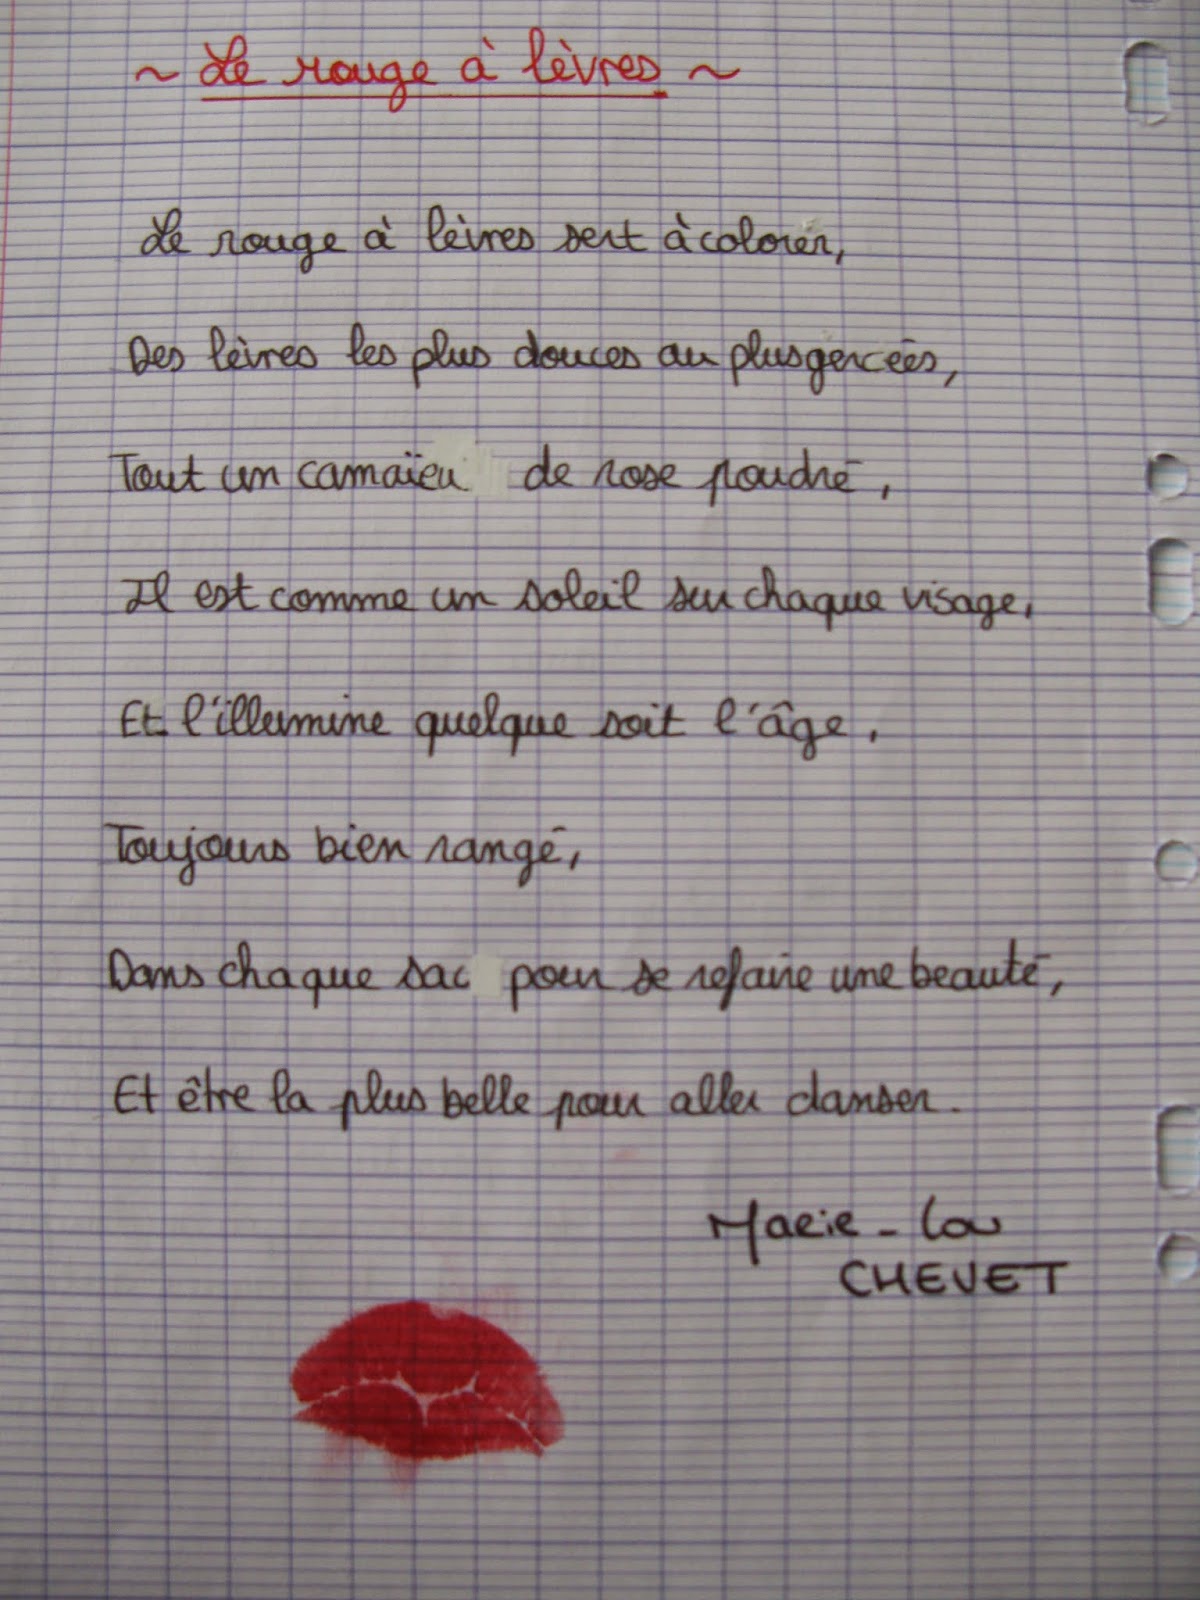 ~ Le rouge à lèvres ~
Le rouge à lèvres sert à colorer,
Des lèvres les plus douces au plus gercées,
Tout un camaïeu de rose poudré,
Il est comme un soleil sur chaque visage,
Et l'illumine quelque soit l'âge,
Toujours bien rangé,
Dans chaque sac pour se refaire une beauté,
Et être la plus belle pour aller danser.
Marie-Lou
CHEVET